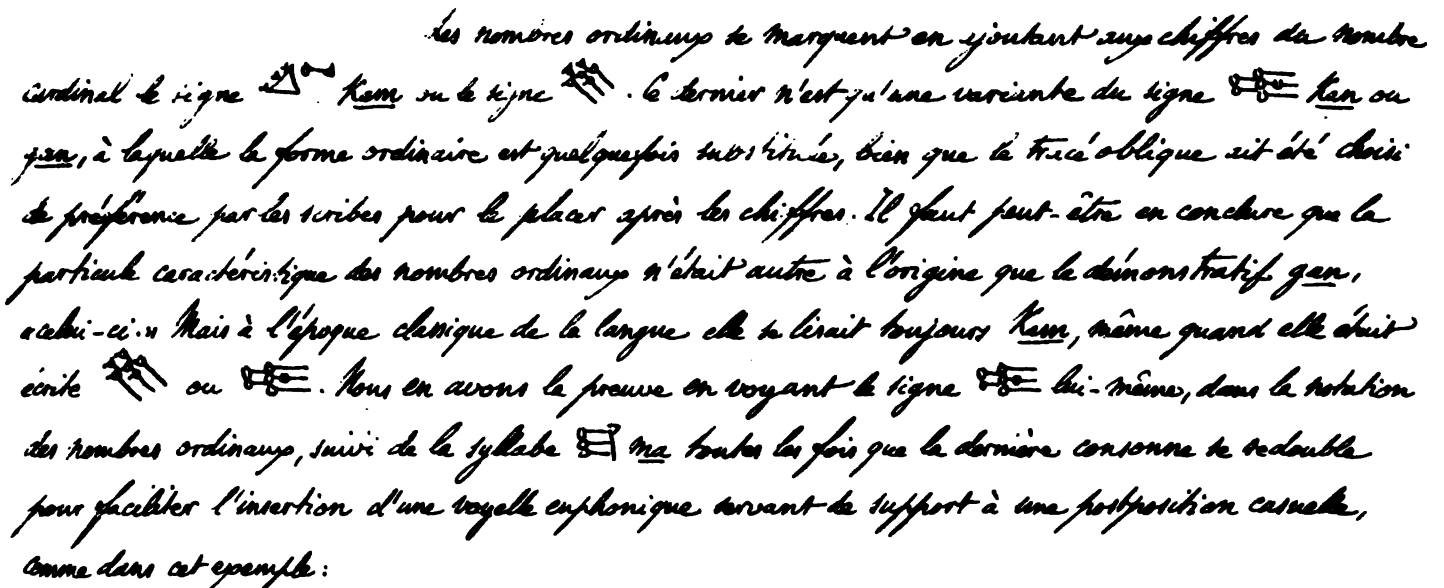 Les nombres ordinaux se marquent en ajoutant aux chiffres du nombre
cardinal le signe 𒄰 Kam ou le signe 𒃷. Ce dernier n'est qu'une variante du signe 𒃷 Kan ou
gan, à laquelle la forme ordinaire est quelquefois substituée, bien que le tracé oblique ait été choisi
de préférence par les scribes pour le placer après les chiffres. Il faut peut-être en conclure que la
particule caractéristique des nombres ordinaux n'était autre à l'origine que le démonstratif gan,
«celui-ci.» Mais à l'époque classique de la langue elle se lisait toujours Kam, même quand elle était
écrite 𒃷 ou 𒃷. Nous en avons la preuve en voyant le signe 𒃷 lui-même, dans la notation
des nombres ordinaux, suivi de la syllabe 𒈠 ma toutes les fois que la dernière consonne se redouble
pour faciliter l'insertion d'une voyelle euphonique servant de support à une postposition casuelle,
comme dans cet exemple: